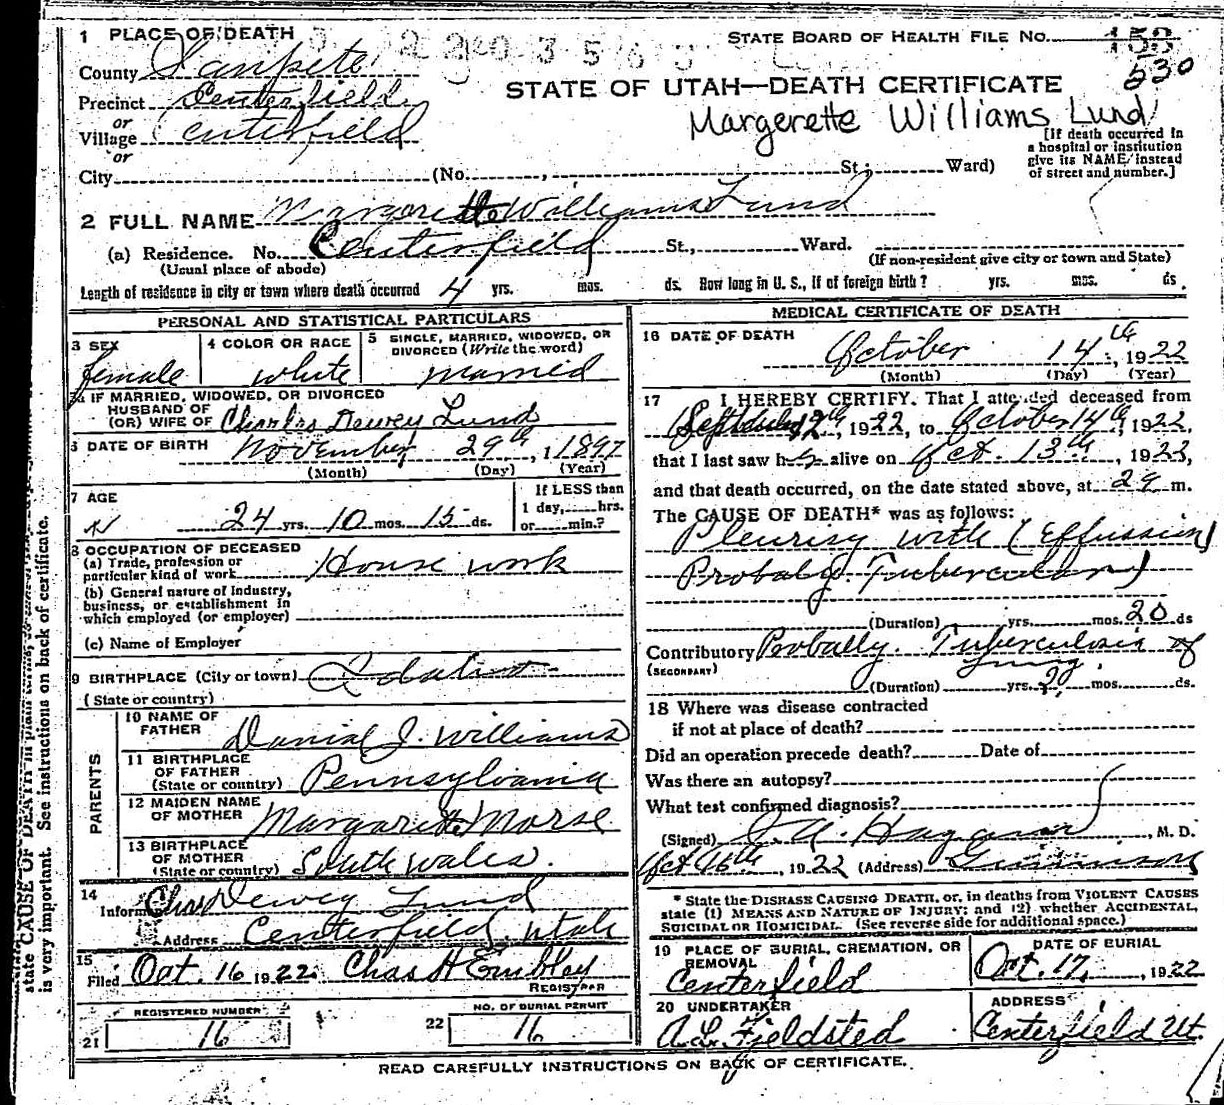 1 PLACE OF DEATH
STATE BOARD OF HEALTH FILE NO. 153
530
County Sanpete
STATE OF UTAH—DEATH CERTIFICATE
Precinct Centerfield
Margerette Williams Lund
or
Village Centerfield
[If death occurred in
a hospital or institution
give its NAME instead
of street and number.]
or
City (No. , St.; Ward)
2 FULL NAME Margarette Williams Lund
(a) Residence. No. Centerfield St., Ward.
(Usual place of abode) (If non-resident give city or town and State)
Length of residence in city or town where death occurred 4 yrs. mos. ds. How long in U. S., if of foreign birth? yrs. mos. ds.
PERSONAL AND STATISTICAL PARTICULARS
3 SEX
female
4 COLOR OR RACE
white
5 SINGLE, MARRIED, WIDOWED, OR
DIVORCED (Write the word)
married
IF MARRIED, WIDOWED, OR DIVORCED
HUSBAND OF
(OR) WIFE OF Charles Dewey Lund
6 DATE OF BIRTH November 29th, 1897
(Month) (Day) (Year)
7 AGE
24 yrs. 10 mos. 15 ds.
If LESS than
1 day, hrs.
or min.?
8 OCCUPATION OF DECEASED
(a) Trade, profession or
particular kind of work House work
(b) General nature of industry,
business, or establishment in
which employed (or employer)
(c) Name of Employer
9 BIRTHPLACE (City or town)
(State or country)
PARENTS
10 NAME OF
FATHER Danial J. Williams
11 BIRTHPLACE
OF FATHER
(State or country) Pennsylvania
12 MAIDEN NAME
OF MOTHER Margarette Morse
13 BIRTHPLACE
OF MOTHER
(State or country) South Wales.
14
Informant Chas Dewey Lund
Address Centerfield, Utah
15
Filed Oct. 16 1922. Chas H Embley
REGISTRAR
REGISTERED NUMBER
21 16
NO. OF BURIAL PERMIT
22 16
MEDICAL CERTIFICATE OF DEATH
16 DATE OF DEATH
October 14th, 1922
(Month) (Day) (Year)
17 I HEREBY CERTIFY. That I attended deceased from
September 12th, 1922, to October 14th, 1922,
that I last saw her alive on Oct. 13th, 1922,
and that death occurred, on the date stated above, at 2a m.
The CAUSE OF DEATH* was as follows:
Pleurisy with (Effussion)
Probaly Tubercular)
(Duration) yrs. mos. 20 ds
Contributory Probally. Tuberculosis of
(SECONDARY) lung.
(Duration) yrs. mos. ds.
18 Where was disease contracted
if not at place of death?
Did an operation precede death? Date of
Was there an autopsy?
What test confirmed diagnosis?
(Signed) , M. D.
Oct 16th, 1922 (Address) Gunnison
* State the DISEASE CAUSING DEATH, or, in deaths from VIOLENT CAUSES
state (1) MEANS AND NATURE OF INJURY; and (2) whether ACCIDENTAL,
SUICIDAL OR HOMICIDAL. (See reverse side for additional space.)
19 PLACE OF BURIAL, CREMATION, OR
REMOVAL
Centerfield
DATE OF BURIAL
Oct. 17, 1922
20 UNDERTAKER
A L Fieldsted
ADDRESS
Centerfield Ut.
READ CAREFULLY INSTRUCTIONS ON BACK OF CERTIFICATE.
state CAUSE OF DEATH in plain terms,
is very important. See instructions on back of certificate.